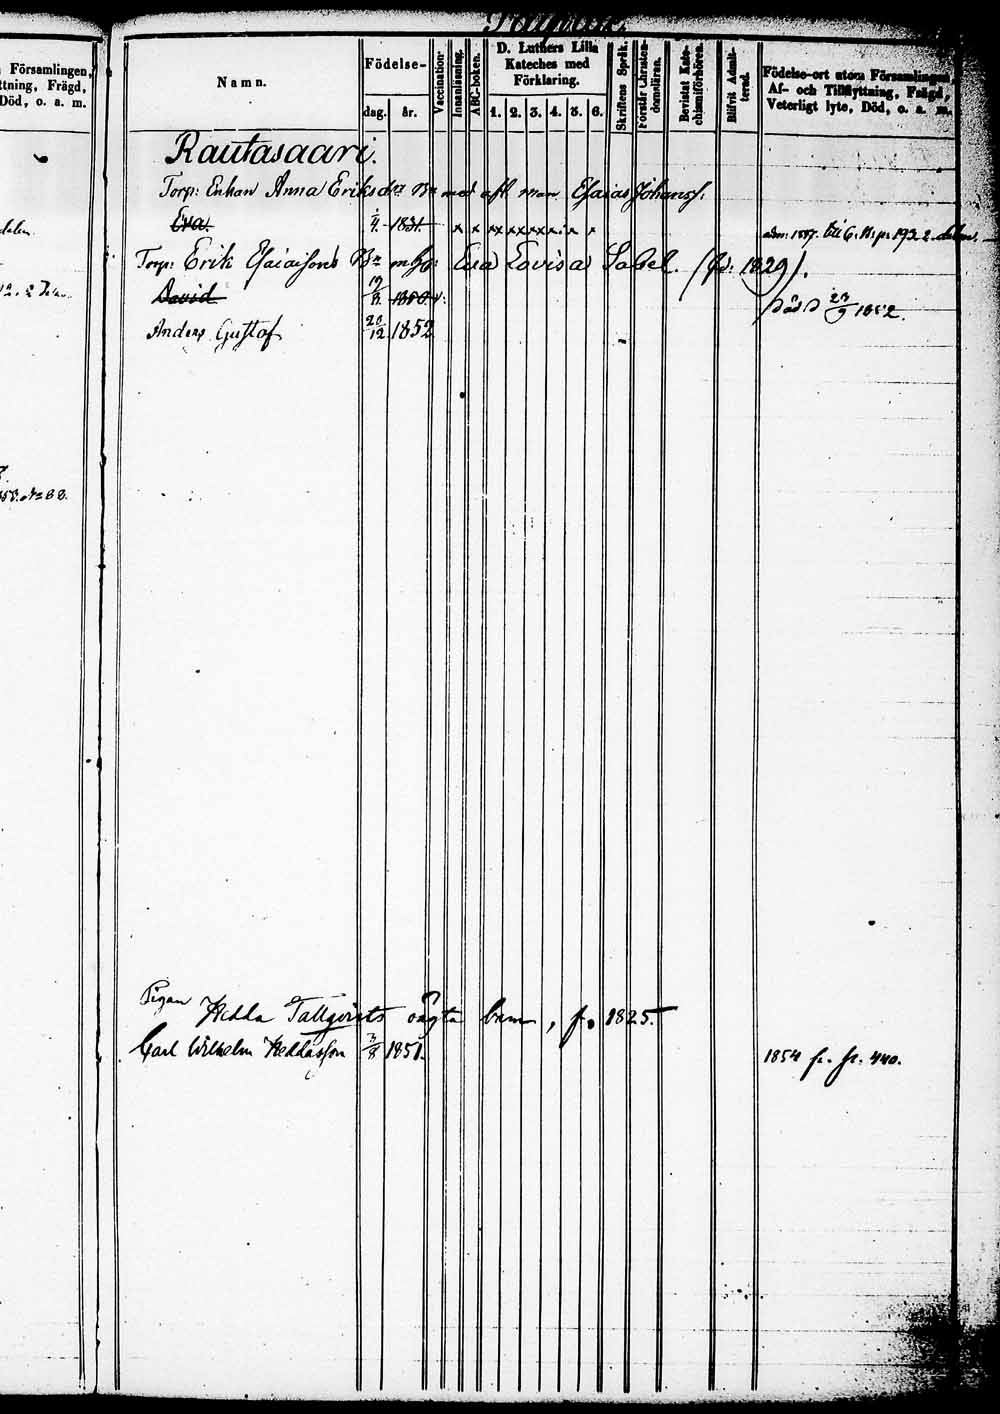 Församlingen,
ttning, Frägd,
Död, o. a. m.
Namn.
Födelse-
dag. år.
Vaccination
Innanläsning.
ABC-boken.
D. Luthers Lilla
Kateches med
Förklaring.
1. 2. 3. 4. 5. 6.
Skriftens Språk.
Förstår Christen-
domsläran.
Bevistat Kate-
chismiförhören.
Blifvit Admit-
terad.
Födelse-ort utom Församlingen,
Af- och Tillflyttning, Frägd,
Veterligt lyte, Död, o. a. m.
Rautasaari.
Torp: Enkan Anna Eriksdr Bn med afl. man Esaias Johanss.
Eva. 4. 1831. x x xx xxxxx x x x
Torp: Erik Esaiaissons Bn m. h. Eva Lovisa Sabel. (föd: 1829).
David 17/8. 1850 v. Död 23/9 1852.
Anders Gustaf 20/12. 1852.
Pigan
Hedda Tallqvists oägta barn, f. 1825.
Carl Wilhelm Heddasson 3/8 1851. 1854 fr. fr. 440.